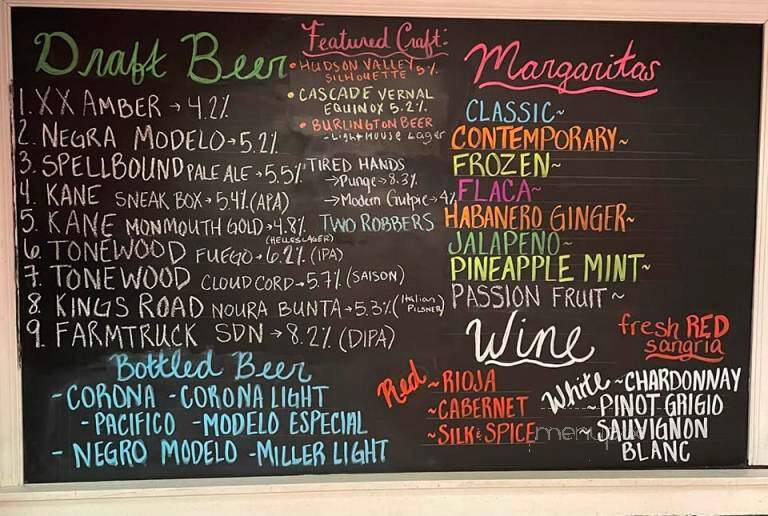 Draft Beer
1. XX AMBER → 4.2%
2. NEGRA MODELO → 5.2%
3. SPELLBOUND PALE ALE → 5.5%
4. KANE SNEAK BOX → 5.4% (APA)
5. KANE MONMOUTH GOLD → 4.8%
(HELLES LAGER)
6. TONEWOOD FUEGO → 6.2% (IPA)
7. TONEWOOD CLOUD CORD → 5.7% (SAISON)
8. KINGS ROAD NOURA BUNTA → 5.3% (Italian PILSNER)
9. FARMTRUCK SDN → 8.2% (DIPA)
Featured Craft:
• HUDSON VALLEY 5%
SILHOUETTE
• CASCADE VERNAL
EQUINOX 5.2%
• BURLINGTON BEER
- LIGHTHOUSE Lager
TIRED HANDS
→ Punge → 8.3%
→ Modern Gulpic → 4%
TWO ROBBERS
Bottled Beer
- CORONA - CORONA LIGHT
- PACIFICO - MODELO ESPECIAL
- NEGRO MODELO - MILLER LIGHT
Margaritas
CLASSIC~
CONTEMPORARY~
FROZEN~
FLACA~
HABANERO GINGER~
JALAPEÑO~
PINEAPPLE MINT~
PASSION FRUIT~
Wine
fresh RED
sangria
Red ~RIOJA
~CABERNET
~SILK & SPICE
White ~CHARDONNAY
~PINOT GRIGIO
~SAUVIGNON
BLANC